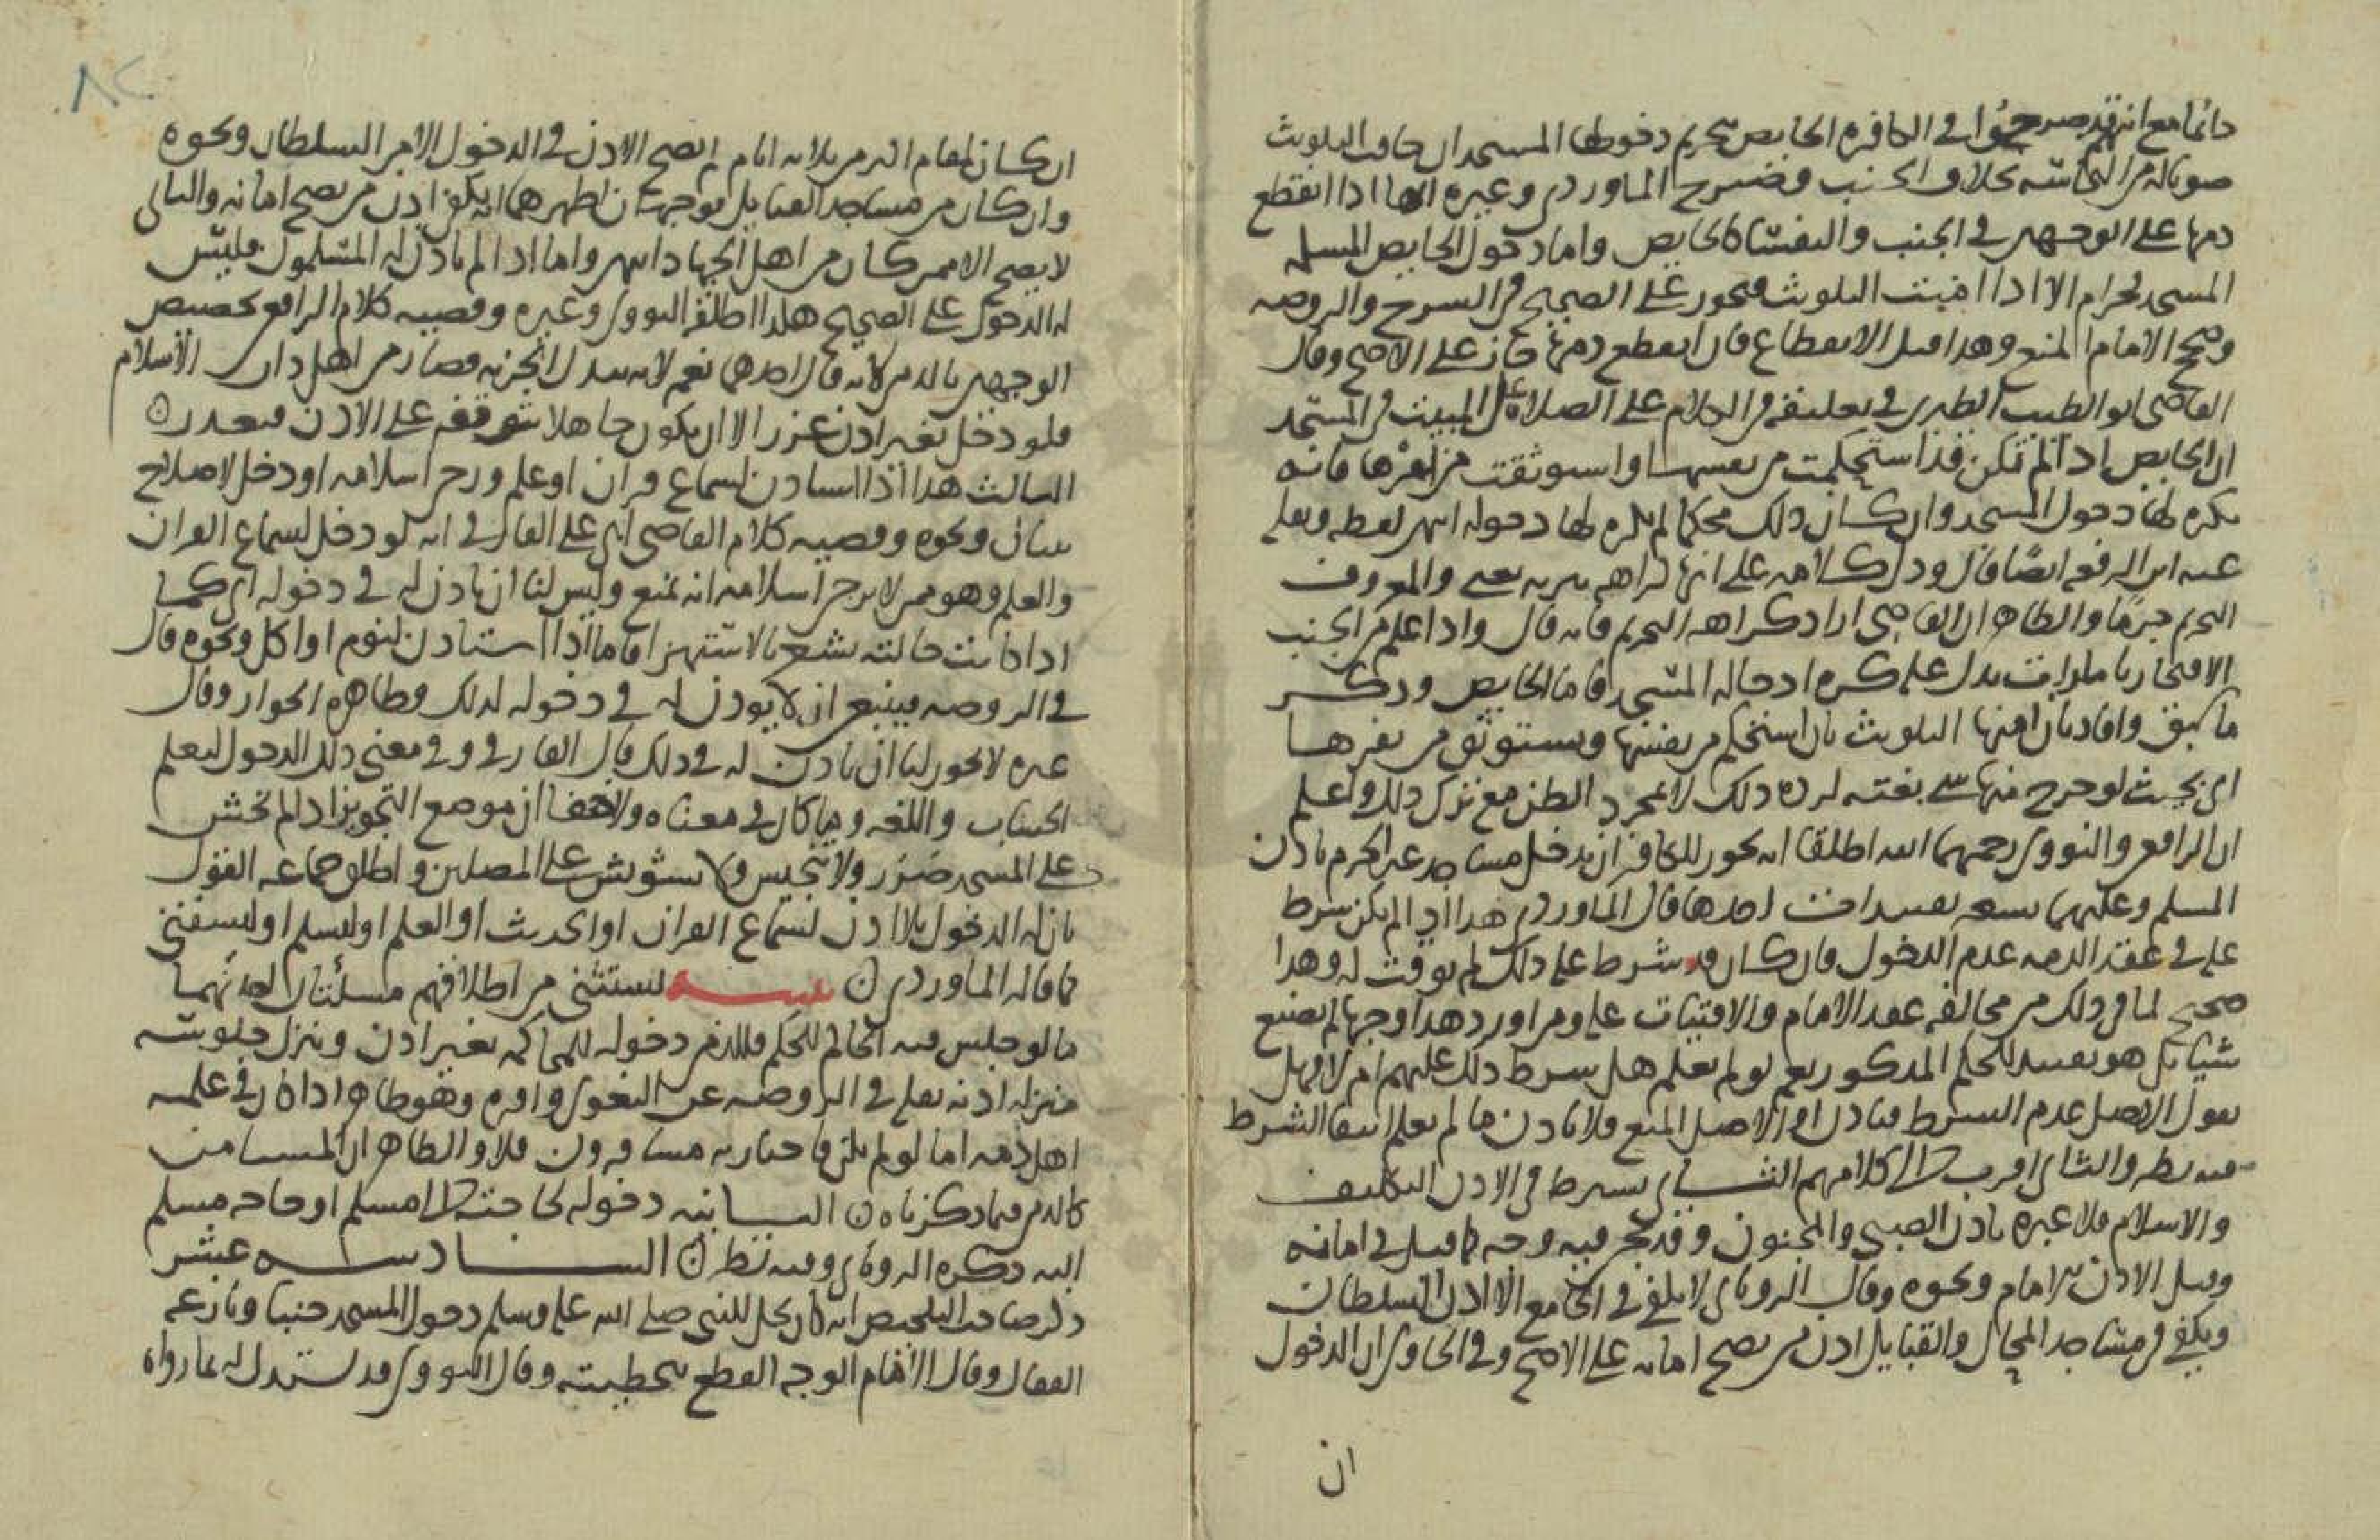 دائما مع انهم قد صرحوا في الكافرة الحايض بتحريم دخولها المسجد ان خافت التلويث
صونا له من النجاسة بخلاف الجنب وصرح الماوردي وغيره انها اذا انقطع
دمها على الوجهين في الجنب والنفسا كالحايض واما دخول الحايض المسلمة
المسجد فحرام الا اذا امنت التلويث فيجوز على الصحيح في الشرح والروضه
وصحح الامام المنع وهذا قبل الانقطاع فان انقطع دمها جاز على الاصح وقال
القاضي ابو الطيب الطبري في تعليقه في الكلام على الصلاة المبيت في المسجد
ان الحايض اذا لم تكن قد استحكمت من نفسها واستوثقت من فانه
يكره لها دخول المسجد وان كان ذلك محكما لم يكره لها دخوله انتهى لفظه ونقله
عنه ابن الرفعه ايضا قال ودل كلامه على انها كراهه تنزيه يعني والمعروف
التحريم جزما والظاهر ان القاضي اراد كراهه التحريم فانه قال واذا اعلم من الجنب
ادخاله المسجد فاما الحايض وذكر
ما سبق وافاد بان امنها التلويث بان استحكم من نفسها وتستوثق من
اي بحيث لو خرج منها شي بغته لرده ذلك لا بمجرد الظن مع ترك ذلك واعلم
ان الرافعي والنووي رحمهما الله اطلقا انه يجوز للكافر ان يدخل مساجد غير الحرم باذن
المسلم وعليهما تقييدات احدها قال الماوردي هذا اذا لم يكن شرط
عليه في عقد الذمه عدم الدخول فان كان قد شرط عليه ذلك لم يؤذن له وهذا
صحيح لما في ذلك من مخالفة عقد الامام والافتيات عليه ومن اورد هذا وجها لم يصنع
شيا بل هو تقييد للحكم المذكور نعم لو لم يعلم هل شرط ذلك عليهم ام لا فهل
نقول الاصل عدم الشرط فياذن او الاصل المنع فلا ياذن ما لم يعلم انتفا الشرط
فيه نظر والثاني اقرب الى كلامهم الثاني يشترط في الاذن التكليف
والاسلام فلا عبره باذن الصبي والمجنون وقد يجي فيه وجه كما قيل في امانه
وقيل الاذن للامام ونحوه وقال الروياني لا يكفي في الجامع الا اذن السلطان
ويكفي في مساجد المحال والقبايل اذن من يصح امانه على الاصح وفي الحاوي ان الدخول
ان
٨٢
ان كان لمقام اكثر من ثلاثه ايام لم يصح الاذن في الدخول الا من السلطان ونحوه
وان كان من مساجد القبايل فوجهان اظهرهما انه يكفي اذن من يصح امانه والثاني
لا يصح الا ممن كان من اهل الجهاد انتهى واما اذا لم ياذن له المسلمون فليس
له الدخول على الصحيح هكذا اطلقه النووي وغيره وقضيه كلام الرافعي تخصيص
الوجهين بالذمي لانه قال احدهما نعم لانه ببذل الجزيه فصار من اهل دار الاسلام
فلو دخل بغير اذن عزر الا ان يكون جاهلا بتوقفه على الاذن فيعذر
الثالث هذا اذا استاذن لسماع قران او علم ورجي اسلامه او دخل لاصلاح
بنيان ونحوه وقضيه كلام القاضي ابي علي الفارقي انه لو دخل لسماع القران
والعلم وهو ممن لا يرجى اسلامه انه يمنع وليس لنا ان ناذن له في دخوله اي كما
اذا كانت حالته تشعر بالاستهزا فاما اذا استاذن لنوم او اكل ونحوه قال
في الروضه فينبغي ان لا يؤذن له في دخوله لذلك وظاهره الجواز وقال
غيره لا يجوز لنا ان ناذن له في ذلك قال الفارقي وفي معنى ذلك الدخول لتعلم
الحساب واللغه وما كان في معناه ولا خفا ان موضع التجويز اذا لم يخش
على المسجد ضرر ولا تنجيس ولا تشويش على المصلين واطلق جماعه القول
بان له الدخول بلا اذن لسماع القران او الحديث او العلم او ليسلم او ليستفتي
كما قاله الماوردي تنبيه يستثنى من اطلاقهم مسئلتان احدهما
ما لو جلس فيه الحاكم للحكم فللذمي دخوله للمحاكمه بغير اذن وينزل جلوسه
منزله اذنه نقله في الروضه عن البغوي واقره وهو ظاهر اذا كان في علمه
اهل ذمه اما لو لم يكن فاجتاز به مسافرون فلا والظاهر ان المستامن
كالذمي فيما ذكرناه الثانيه دخوله لحاجته الى مسلم او حاجه مسلم
اليه ذكره الروياني وفيه نظر السادسه عشر
ذكر صاحب التلخيص انه كان يحل للنبي صلى الله عليه وسلم دخول المسجد جنبا ونازعه
القفال وقال الامام الوجه القطع بتخطيته وقال النووي قد يستدل له بما رواه